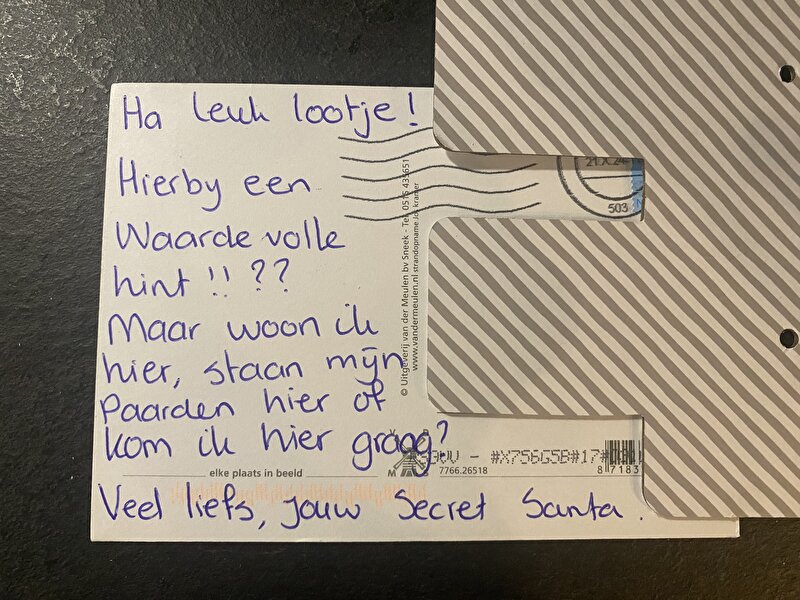 Ha leuk lootje!
Hierby een
Waardevolle
hint !! ??
Maar woon ik
hier, staan mijn
Paarden hier of
kom ik hier graag?
Veel liefs, jouw Secret Santa.
© Uitgeverij van der Meulen bv Sneek - Tel. 0515 435651
www.vandermeulen.nl strandopname Jos Kramer
21 X 24
503
#X756G5B#17#
7766.26518
8 7183
elke plaats in beeld